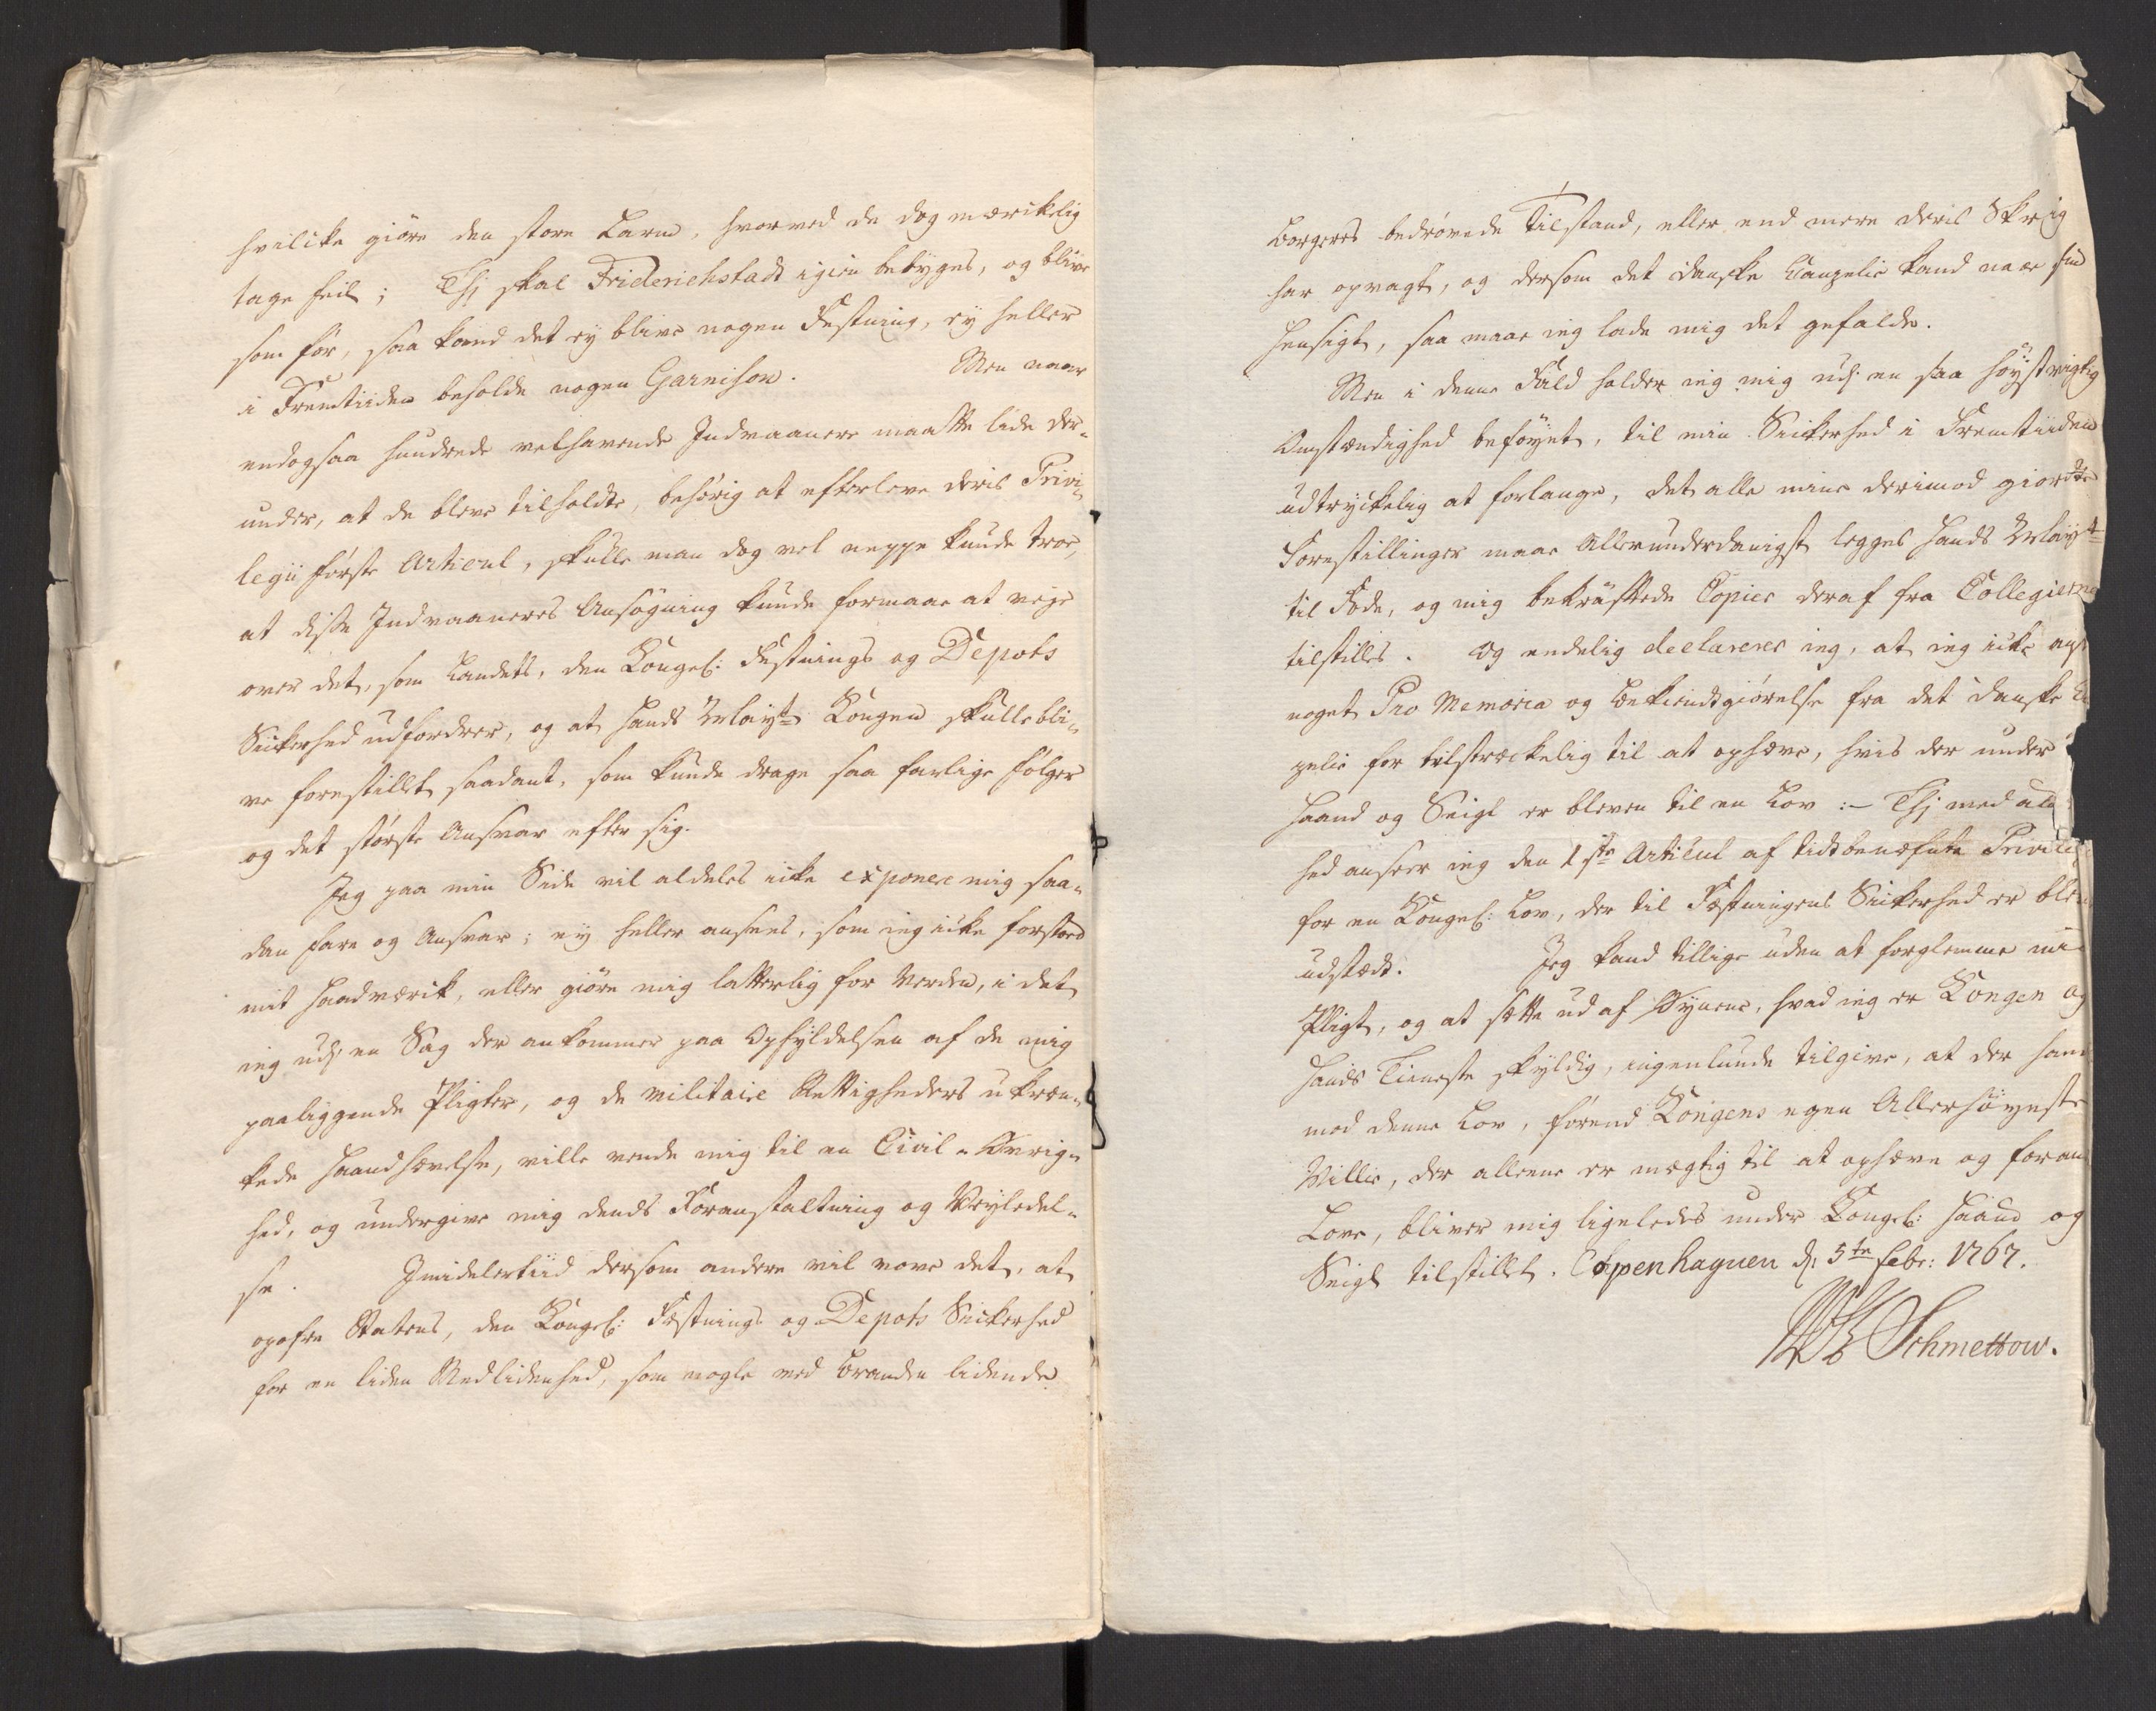 hvilcke giöre den store Larm, hvorved de dog mærckelig
tage feil; Thj skal Friderichstadt igien bebyges, og blive
som för, saa kand det ey blive nogen Festning, ey heller
i Fremtiiden beholde nogen Garnison. Men naar
endogsaa hundrede velhavende Indvaanere maatte lide der-
under, at de bleve tilholdte, behörig at efterleve deris Privi-
legii förste Articul, skulle man dog vel neppe kunde troe,
at disse Indvaaneres Ansögning kunde formaae at veje
over det, som Landets, den Kongel: Festnings og Depots
Sickerhed udfordrer, og at Hands Mayt Kongen skulle bli-
ve forestillet saadant, som kunde drage saa farlige Fölger
og det störste Ansvar efter sig.
Jeg paa min Side vil aldeles icke exponere mig saa-
dan Fare og Ansvar; ey heller ansees, som ieg icke forstoed
mit Haandværck, eller giöre mig latterlig for Verden, i det
ieg udj en Sag der ankommer paa Opfyldelsen af de mig
paaliggende Pligter, og de militaire Rettigheders ukræn-
kede Haandhævelse, ville vende mig til en Civil-Övrig-
hed, og undergive mig dends Foranstaltning og Veyledel-
se. Imidlertiid dersom andre vil vove det, at
opofre Statens, den Kongel: Festnings og Depots Sickerhed
for en liden Medlidenhed, som nogle ved Branden lidende
Borgeres bedrövede Tilstand, eller end mere deris Skrig
har opvagt, og dersom det danske Cancelie kand naae sin
Hensigt, saa maae ieg lade mig det gefalde.
Men i denne Fald holder ieg mig udj en saa höystvigtig
Omstændighed beföyet, til min Sickerhed i Fremtiiden
udtryckelig at forlange, det alle mine derimod giordte
Forestillinger maae Allerunderdanigst legges Hands Mayt
til Fode, og mig bekräfftede Copier deraf fra Collegierne
tilstilles. Og endelig declarerer ieg, at ieg icke
noget Pro Memoria og Bekiendtgiörelse fra det danske
zelie for tilstræckelig til at ophæve, hvis der under
Haand og Seigl er bleven til en Lov :- Thj med
hed anseer ieg den 1ste Articul af tidtbenæfnte
for en Kongel: Lov, der til Fæstningens Sickerhed er
udstædt. Jeg kand tillige uden at forglemme
Pligt, og at sette ud af Öynene, hvad ieg er Kongen og
Hands Tieneste skyldig, ingenlunde tilgive, at der
mod denne Lov, förend Kongens egen Allerhöyeste
Villie, der alleene er mægtig til at ophæve og
Love, bliver mig ligeledes under Kongel: Haand og
Seigl tilstillet. Copenhaguen d: 5te Febr: 1767.
Schmettow.